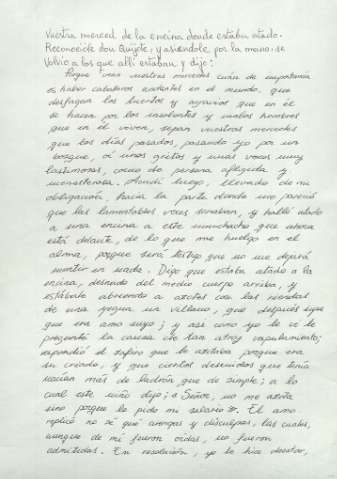 Vuestra merced de la encina donde estaba atado.
Reconocióle don Quijote, y asiéndole por la mano, se
volvió a los que allí estaban y dijo:
Porque vean vuestras mercedes cuán de importancia
es haber caballeros andantes en el mundo, que
desfagan los tuertos y agravios que en él
se hacen por los insolentes y malos hombres
que en él viven, sepan vuestras mercedes
que los días pasados, pasando yo por un
bosque, oí unos gritos y unas voces muy
lastimosas, como de persona afligida y
menesterosa. Acudí luego, llevado de mi
obligación, hacia la parte donde me pareció
que las lamentables voces sonaban, y hallé atado
a una encina a este muchacho que ahora
está delante, de lo que me huelgo en el
alma, porque será testigo que no me dejará
mentir en nada. Digo que estaba atado a la
encina, desnudo del medio cuerpo arriba, y
estábale abriendo a azotes con las riendas
de una yegua un villano, que después supe
que era amo suyo; y así como yo le vi le
pregunté la causa de tan atroz vapulamiento;
respondió el zafio que le azotaba porque era
su criado, y que ciertos descuidos que tenía
nacían más de ladrón que de simple; a lo
cual este niño dijo: « Señor, no me azota
sino porque le pido mi salario ». El amo
replicó no sé qué arengas y disculpas, las cuales,
aunque de mí fueron oídas, no fueron
admitidas. En resolución, yo le hice desatar,